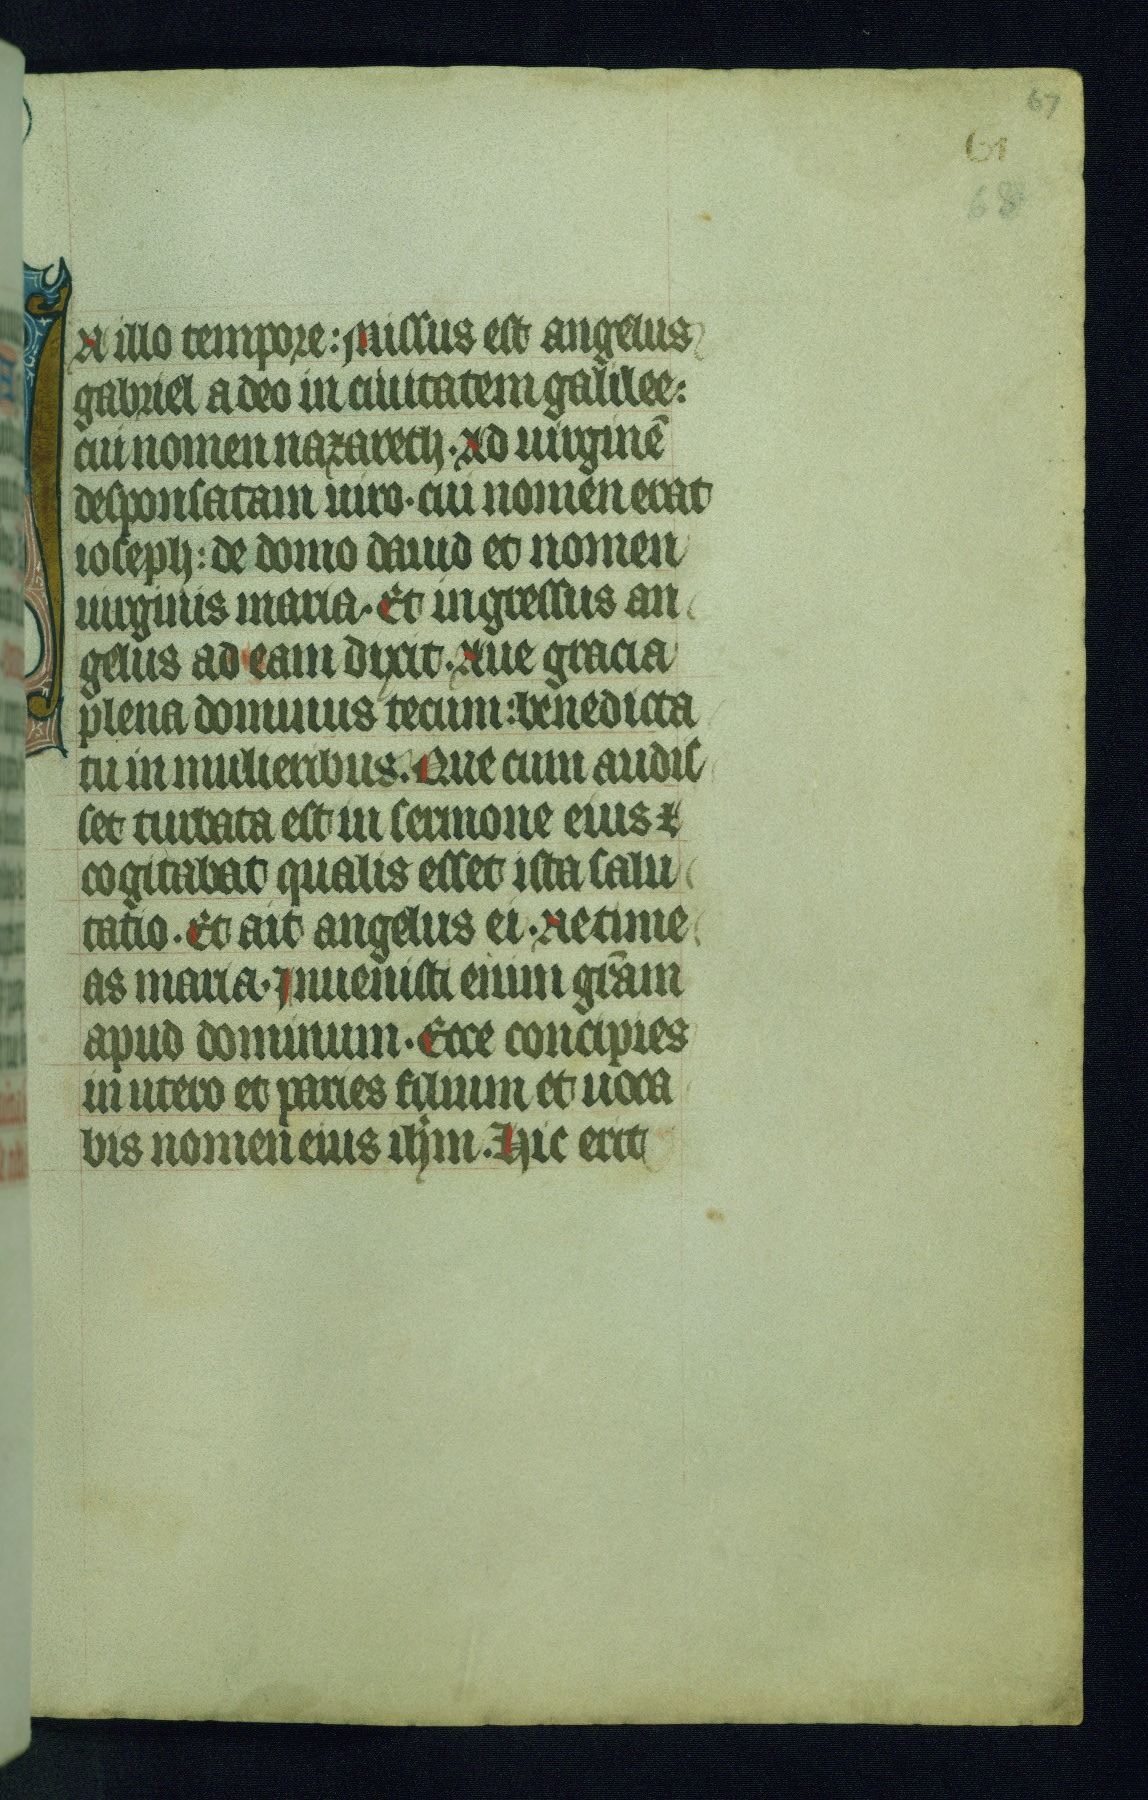 67
61
68
IN illo tempore: Missus est angelus
gabriel a deo in ciuitatem galilee:
cui nomen nazareth. Ad uirginē
desponsatam uiro. cui nomen erat
ioseph: de domo dauid et nomen
uirginis maria. Et ingressus an
gelus ad eam dixit. Aue gracia
plena dominus tecum: benedicta
tu in mulieribus. Que cum audis
set turbata est in sermone eius ⁊
cogitabat qualis esset ista salu
tatio. Et ait angelus ei. Ne time
as maria. Inuenisti enim gr̄am
apud dominum. Ecce concipies
in utero et paries filium et uoca
bis nomen eius ihm̄. Hic erit